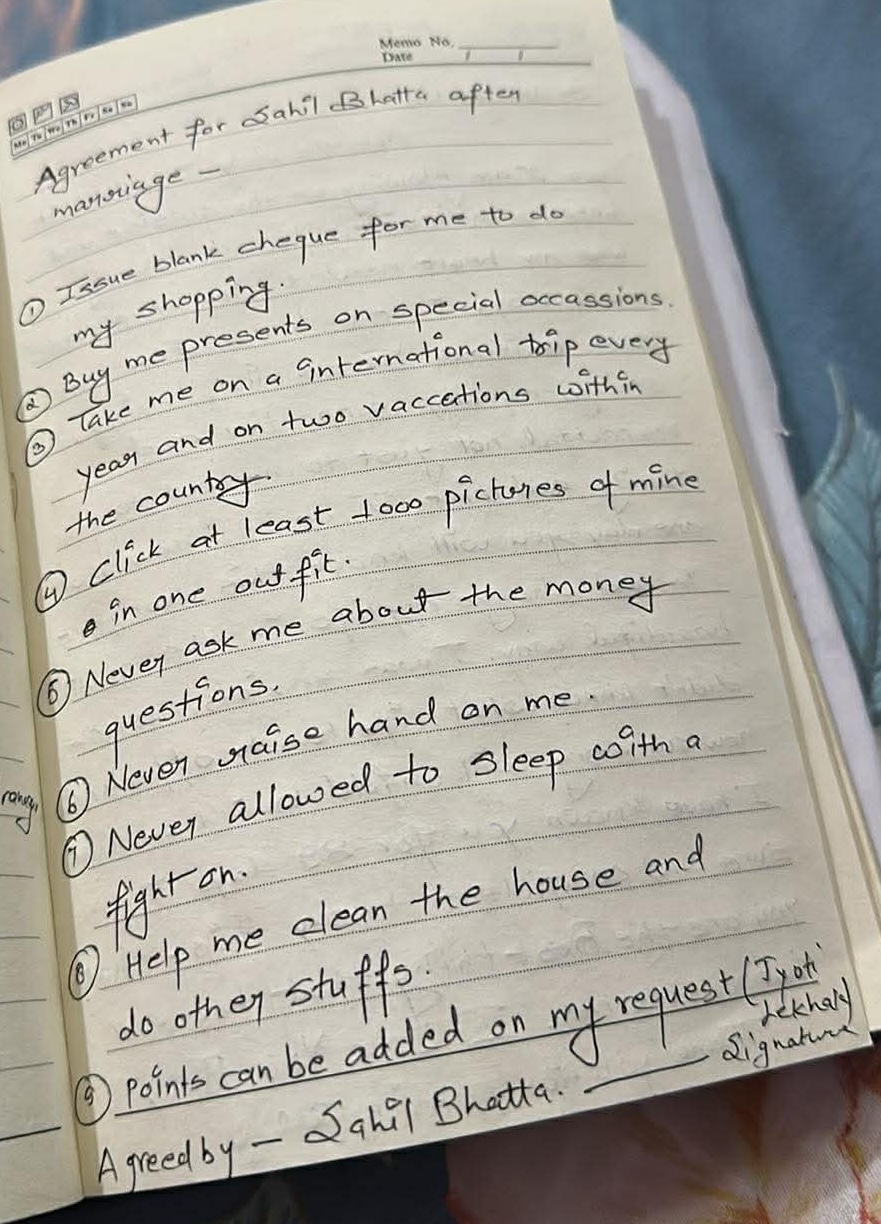 Memo No.
Date / /
Mo Tu We Th Fr Sa Su
Agreement for Sahil Bhatta after
marriage –
① Issue blank cheque for me to do
my shopping.
② Buy me presents on special occassions.
③ Take me on a international trip every
year and on two vaccations within
the country.
④ Click at least 1000 pictures of mine
in one outfit.
⑤ Never ask me about the money
questions.
⑥ Never raise hand on me.
⑦ Never allowed to sleep with a
fight on.
⑧ Help me clean the house and
do other stuffs.
⑨ Points can be added on my request (Jyoti
Lekhak)
Agreed by – Sahil Bhatta. Signature